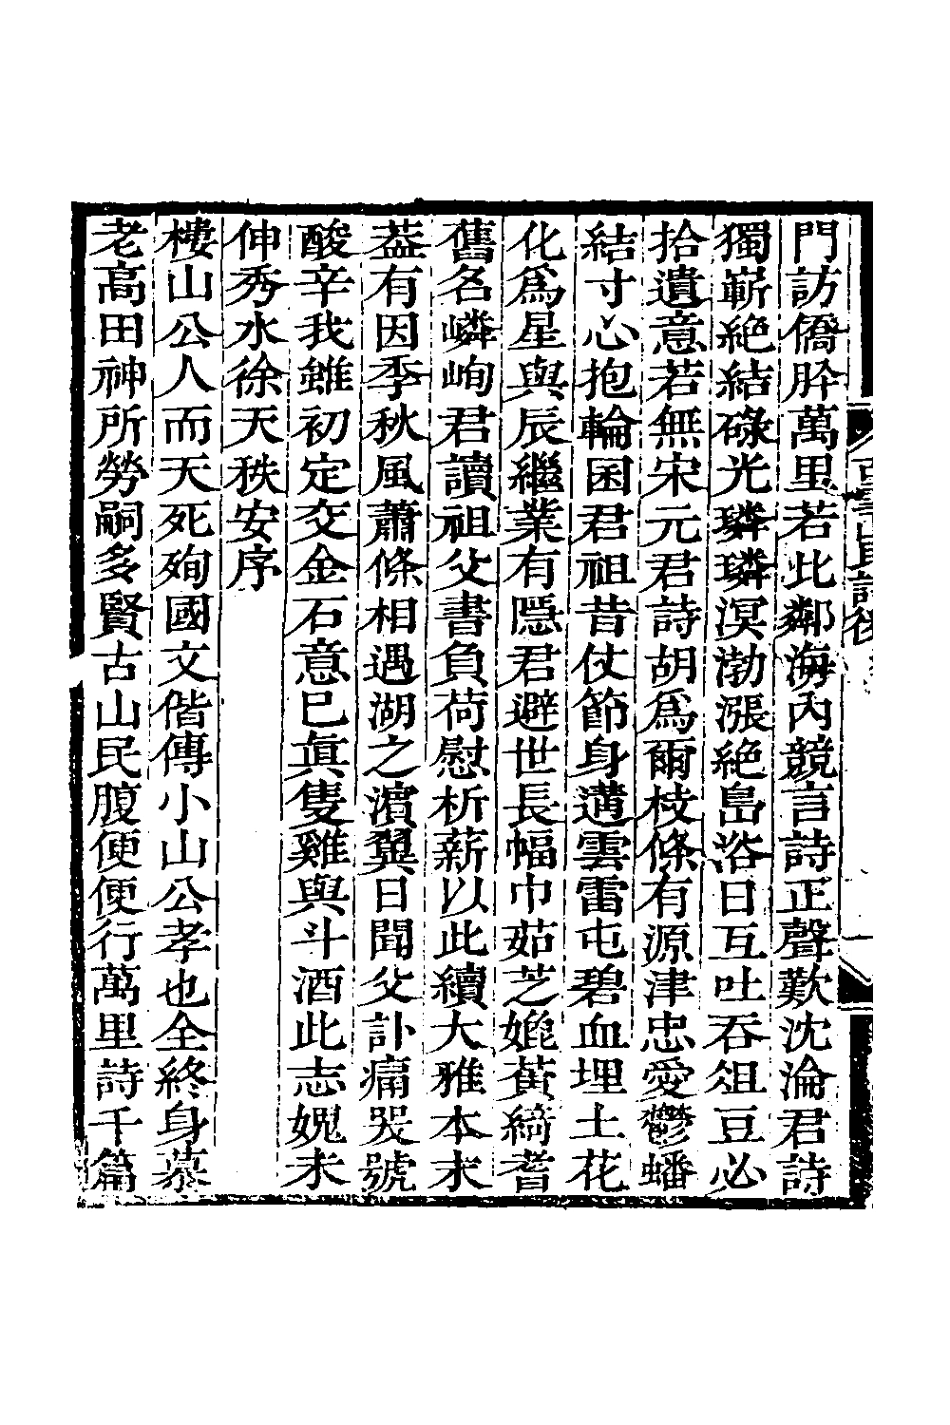 門訪僑肸萬里若比鄰海內競言詩正聲歎沈淪君詩
獨嶄絶結碌光璘璘溟渤漲絶島浴日互吐吞俎豆必
拾遺意若無宋元君詩胡爲爾枝條有源津忠愛鬱蟠
結寸心抱輪囷君祖昔仗節身遘雲雷屯碧血埋土花
化爲星與辰繼業有隱君避世長幅巾茹芝媲黃綺耆
舊名嶙峋君讀祖父書負荷慰析薪以此續大雅本末
葢有因季秋風蕭條相遇湖之濵翼日聞父訃痛哭號
酸辛我雖初定交金石意已眞隻雞與斗酒此志媿未
伸秀水徐天秩安序
樓山公人而天死殉國文偕傳小山公孝也全終身慕
老高田神所勞嗣多賢古山民腹便便行萬里詩千篇